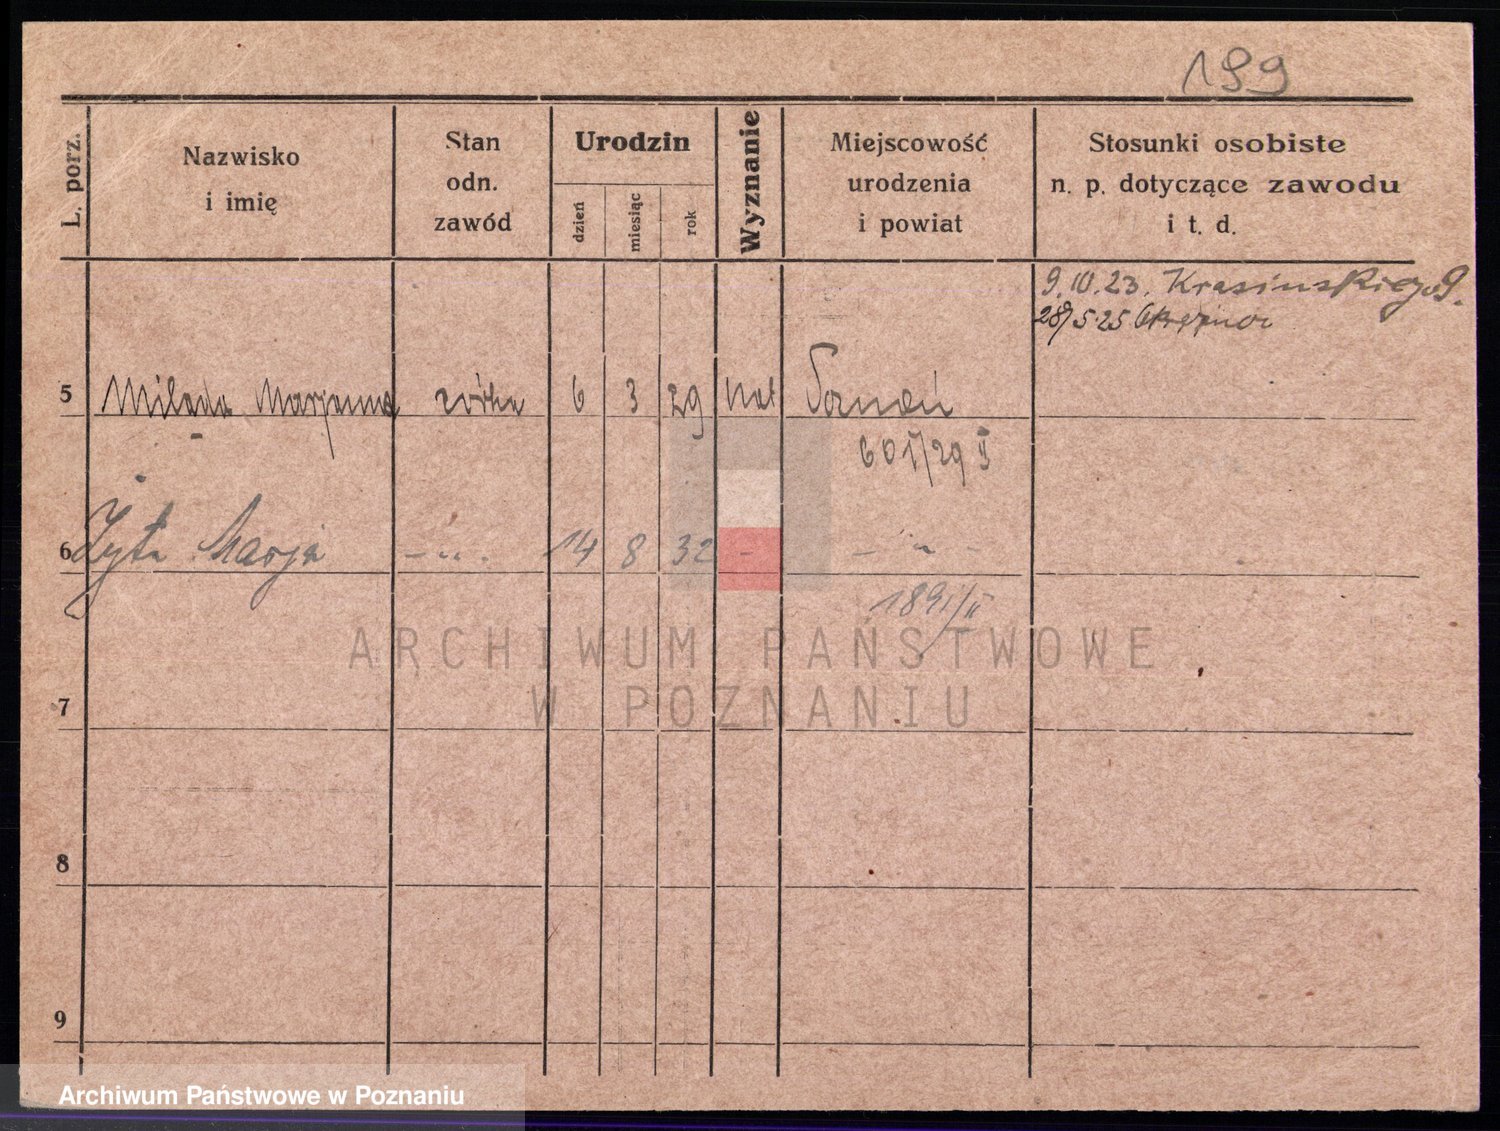 199
L. porz.
Nazwisko
i imię
Stan
odn.
zawód
Urodzin
dzień
miesiąc
rok
Wyznanie
Miejscowość
urodzenia
i powiat
Stosunki osobiste
n. p. dotyczące zawodu
i t. d.
9.10.23. Krasińskiego 9.
28/5 25
5 Milada Marjanna córka 6 3 29 kat Poznań
601/29 II
6 Zyta Marja - " - 14 8 32 - - " -
1891/II
7
8
9
ARCHIWUM PAŃSTWOWE
W POZNANIU
Archiwum Państwowe w Poznaniu